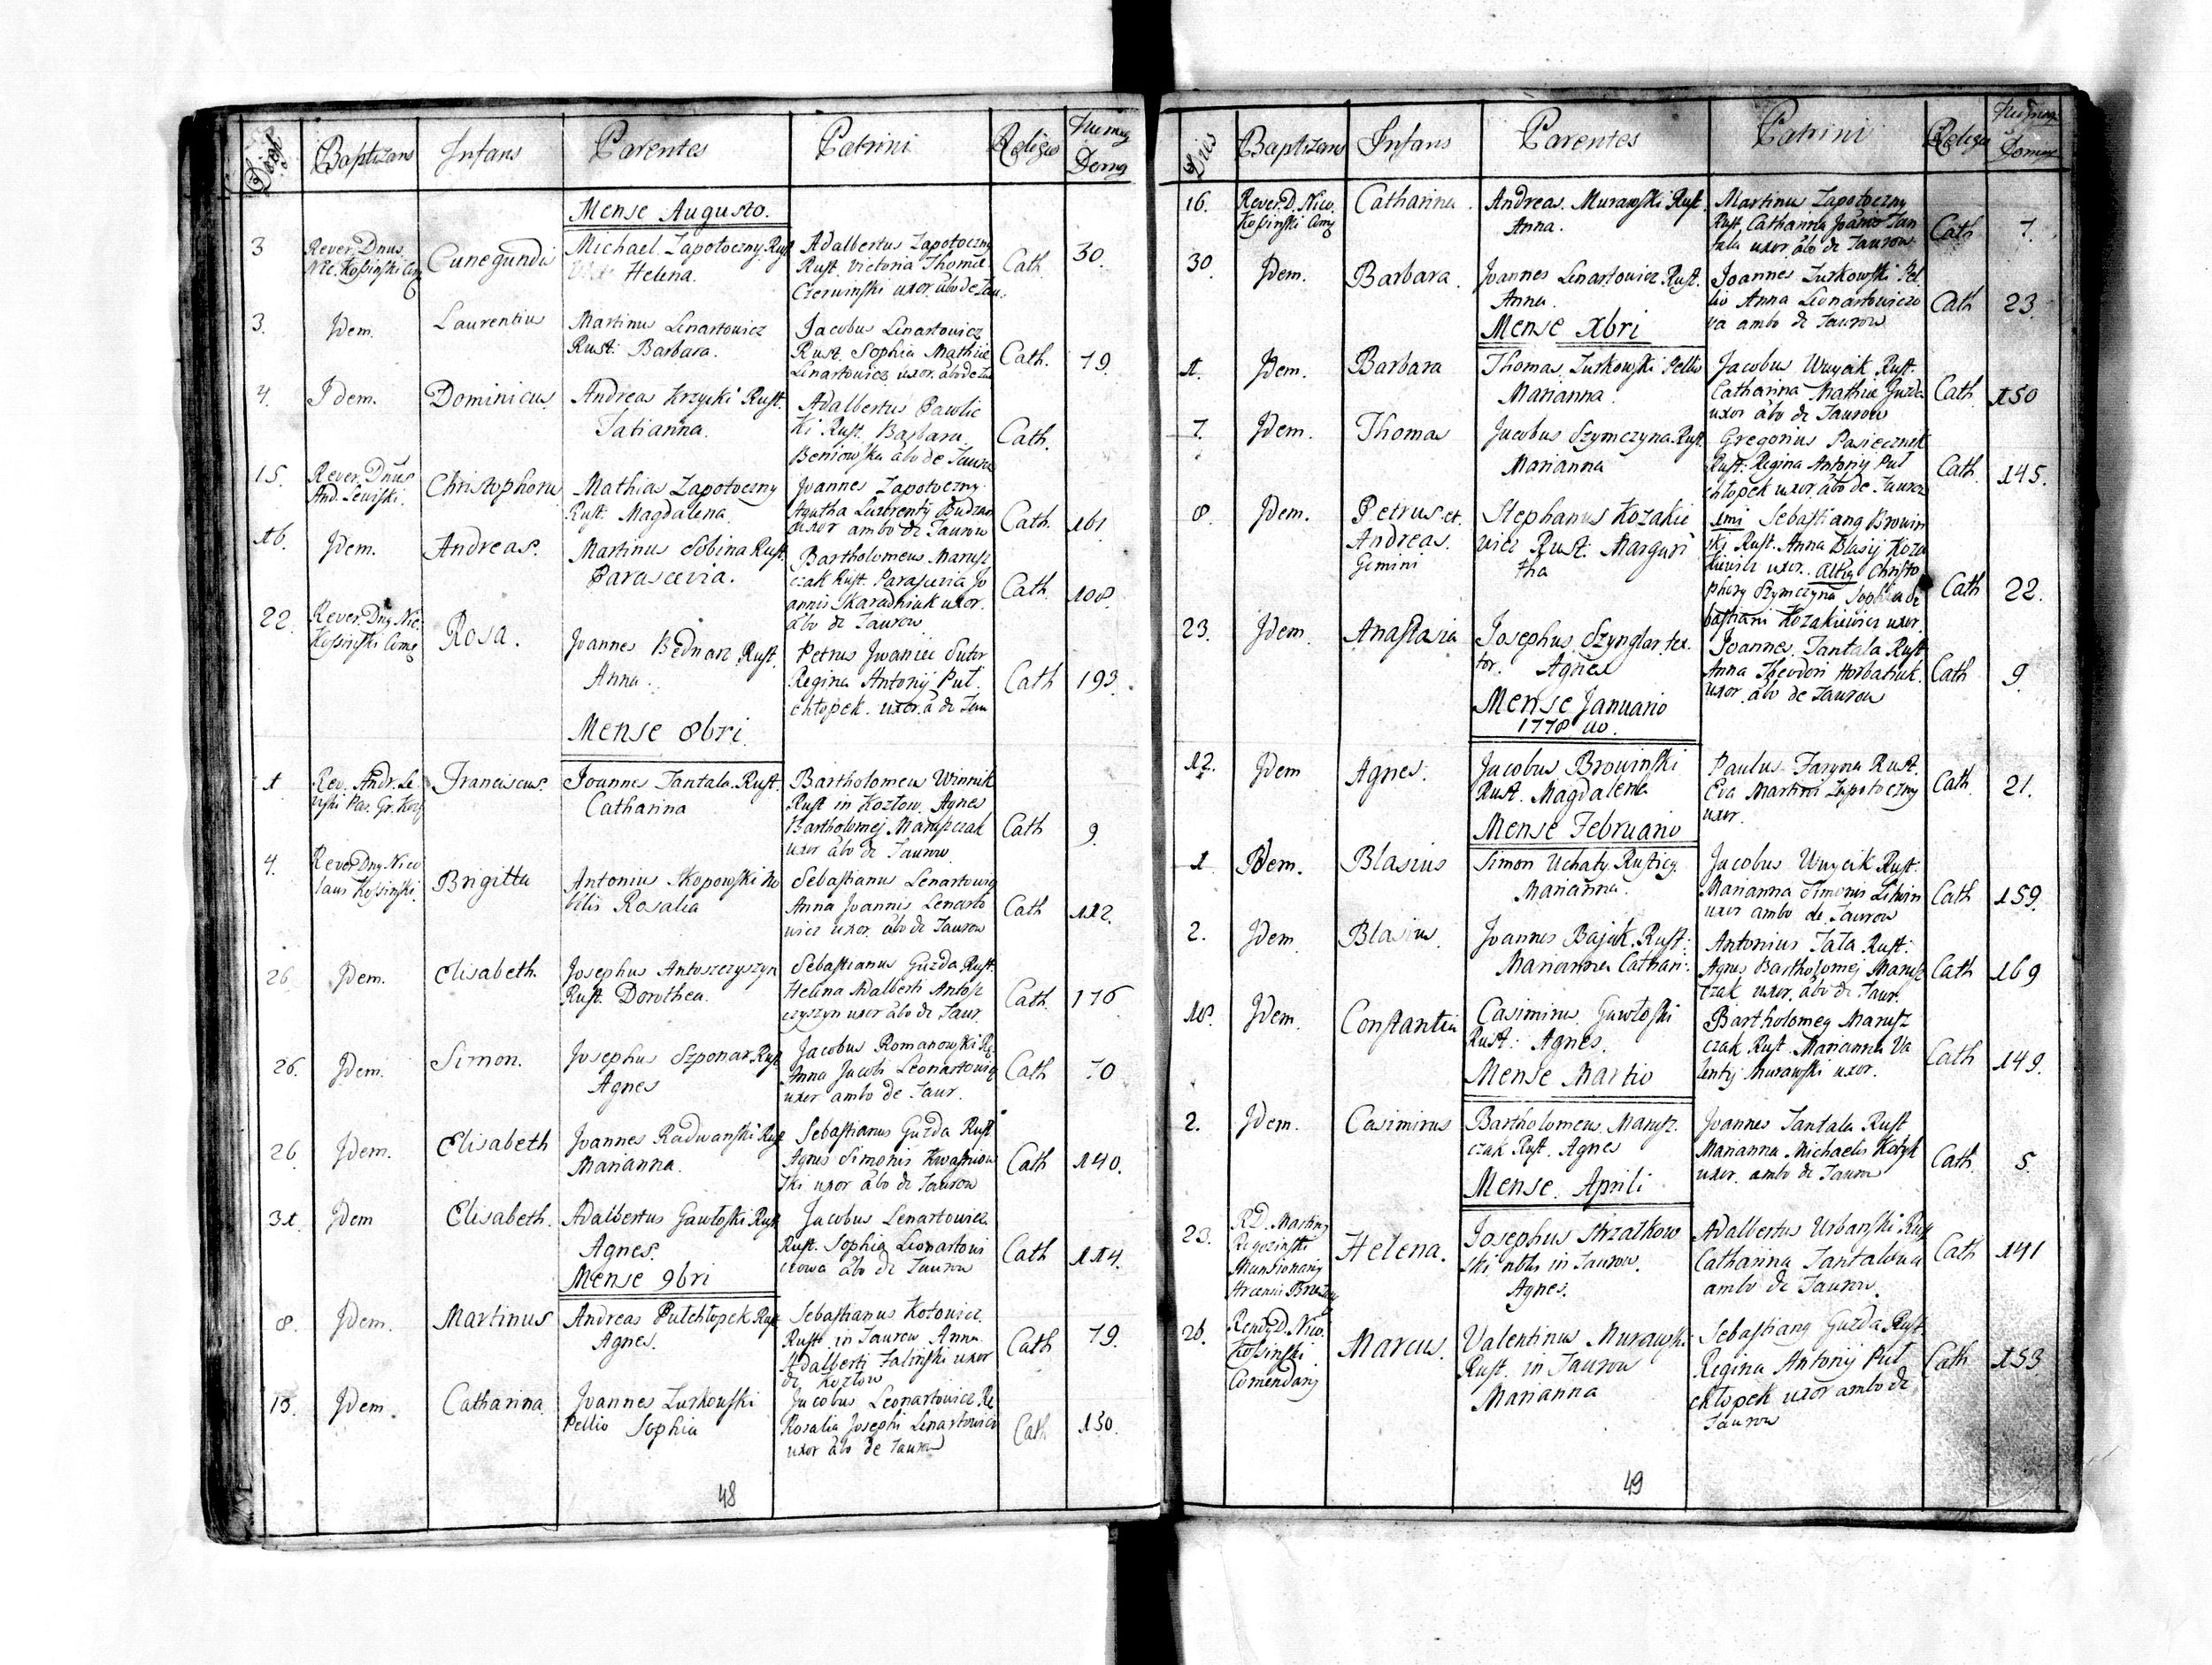 Dies Baptizans Infans Parentes Patrini Religio Numerus Domus
Mense Augusto.
3 Rever. Dnus Nic. Kossinski Com Cunegundis Michael Zapotoczny Rust. Helena. Adalbertus Zapotoczny
Rust. Victoria Thomae
Czerwinski uxor. abo de Tau. Cath. 30.
3. Idem. Laurentius Martinus Lenartowicz
Rust: Barbara. Jacobus Lenartowicz
Rust. Sophia Mathiae
Lenartowicz uxor. abo de Cath. 79.
4. Idem. Dominicus Andreas Krzycki Rust.
Tatianna. Adalbertus Pawlic
ki Rust. Barbara
Beniowska abo de Taurow Cath.
15. Rever. Dnus
And. Lewiski. Christophorus Mathias Zapotoczny
Rust. Magdalena. Joannes Zapotoczny
Agatha Laurentij Budzan
uxor ambo de Taurow Cath. 161
16. Idem. Andreas. Martinus Sobina Rust.
Parascevia. Bartholomeus Marusz
czak Rust. Parascevia Jo
annis Skaradniuk uxor.
abo de Taurow Cath. 108.
22. Rever. Dng Nic.
Kossinski Comg Rosa. Joannes Bednarz Rust.
Anna. Petrus Iwaniec Sutor
Regina Antonij Put
chtopek. uxor. a de Tau Cath 193.
Mense 8bri.
1. Rev. Andr. Le
wski Par. Gr. Franciscus. Joannes Tantala Rust.
Catharina Bartholomeus Winnik
Rust in Kozłow. Agnes
Bartholomej Maruszczak
uxor abo de Taurow. Cath 9.
4. Rever Dng Nico
laus Kossinski. Brigitta Antonius Skopowski No
bilis Rosalia Sebastianus Lenartowicz
Anna Joannis Lenarto
wicz uxor. abo de Taurow Cath 112.
26. Idem. Elisabeth. Josephus Antoszczyszyn
Rust. Dorothea. Sebastianus Guzda Rust.
Helena Adalberti Antosz
czyszyn uxor abo de Taur. Cath. 176
26. Idem. Simon. Josephus Szponar Rust
Agnes Jacobus Romanowski
Anna Jacobi Leonartowicz
uxor ambo de Taur. Cath 70
26 Idem. Elisabeth Joannes Radwanski Rust
Marianna. Sebastianus Guzda Rust
Agnes Simonis Kwasniow
ski uxor abo de Taurow Cath 140.
31 Idem Elisabeth. Adalbertus Gawłoski Rust
Agnes. Jacobus Lenartowicz
Rust. Sophia Leonartowi
czowa abo de Taurow Cath 114.
Mense 9bri
8. Idem. Martinus Andreas Putchłopek Rust
Agnes. Sebastianus Kotowicz
Rust. in Taurow Anna
Adalberti Zalinski uxor
de Kozłow Cath 79.
13. Idem. Catharina Joannes Zurkowski
Pellio Sophia Jacobus Leonartowicz
Rosalia Josephi Lenartowicz
uxor abo de Taurow Cath 150.
48
Dies Baptizans Infans Parentes Patrini Religio Numerus Domus
16. Rever. D. Nico.
Kossinski Comg Catharina. Andreas. Murawski Rust.
Anna. Martinus Zapotoczny
Rust. Catharina Joannis Tan
tala uxor. abo de Taurow. Cath 7.
30. Idem. Barbara. Joannes Lenartowicz Rust.
Anna. Joannes Zurkowski Pel
lio Anna Leonartowiczo
va ambo de Taurow Cath 23.
Mense Xbri
1. Idem. Barbara Thomas Zurkowski Pellio
Marianna. Jacobus Wuycik Rust.
Catharina Mathiae Guzda
uxor abo de Taurow Cath. 150
7. Idem. Thomas Jacobus Szymczyna Rust.
Marianna Gregorius Pasiecznik
Rust: Regina Antonij Put
chłopek uxor abo de Taurow Cath. 145.
8. Idem. Petrus et.
Andreas.
Gemini Stephanus Kozakie
wicz Rust. Margari
tha 1mi Sebastiang Browin
ski Rust. Anna Blasij Koza
kiewicz uxor. Altrg Christo
phorg Szymczyna Sophia Se
bastiani Kozakiewicz uxor. Cath 22.
23. Idem. Anastasia Josephus. Szynglar tex.
tor. Agnes Joannes. Tantala Rust
Anna Theodori Horbatiuk.
uxor. abo de Taurow Cath 9.
Mense Januario
1778 uo.
12. Idem Agnes. Jacobus Browinski
Rust. Magdalena Paulus Faryna Rust.
Eva Martini Zapotoczny
uxor. Cath. 21.
Mense Februario
1 Idem. Blasius Simon Uchaty Rusticg.
Marianna. Jacobus Wuycik Rust:
Marianna Simonis Litwin
uxor ambo de Taurow Cath 159.
2. Idem Blasius. Joannes Bajak. Rust:
Marianna Cathari: Antonius Tała Rust:
Agnes Bartholomej Marusz
czak uxor. abo de Taur. Cath 169
18. Idem. Constantia Casimirus. Gawłoski
Rust: Agnes. Bartholomeg Marusz
czak Rust. Marianna Va
lentij Murawski uxor. Cath 149.
Mense Martio
2. Idem. Casimirus Bartholomeus Marusz.
czak Rust. Agnes Joannes Tantala Rust
Marianna Michaelis Kotyk
uxor. ambo de Taurow Cath. 5.
Mense. Aprili
23. RD. Marting
Mansionarig Helena. Josephus Strzałkow
ski nblis in Taurow.
Agnes. Adalbertus Urbanski Rust
Catharina Tantalowa
ambo de Taurow. Cath 141
26. Rendg D. Nico.
Kossinski
Comendarg Marcus. Valentinus Murawski
Rust. in Taurow
Marianna Sebastiang Guzda Rust.
Regina Antonij Put
chłopek uxor ambo de
Taurow Cath 153
49